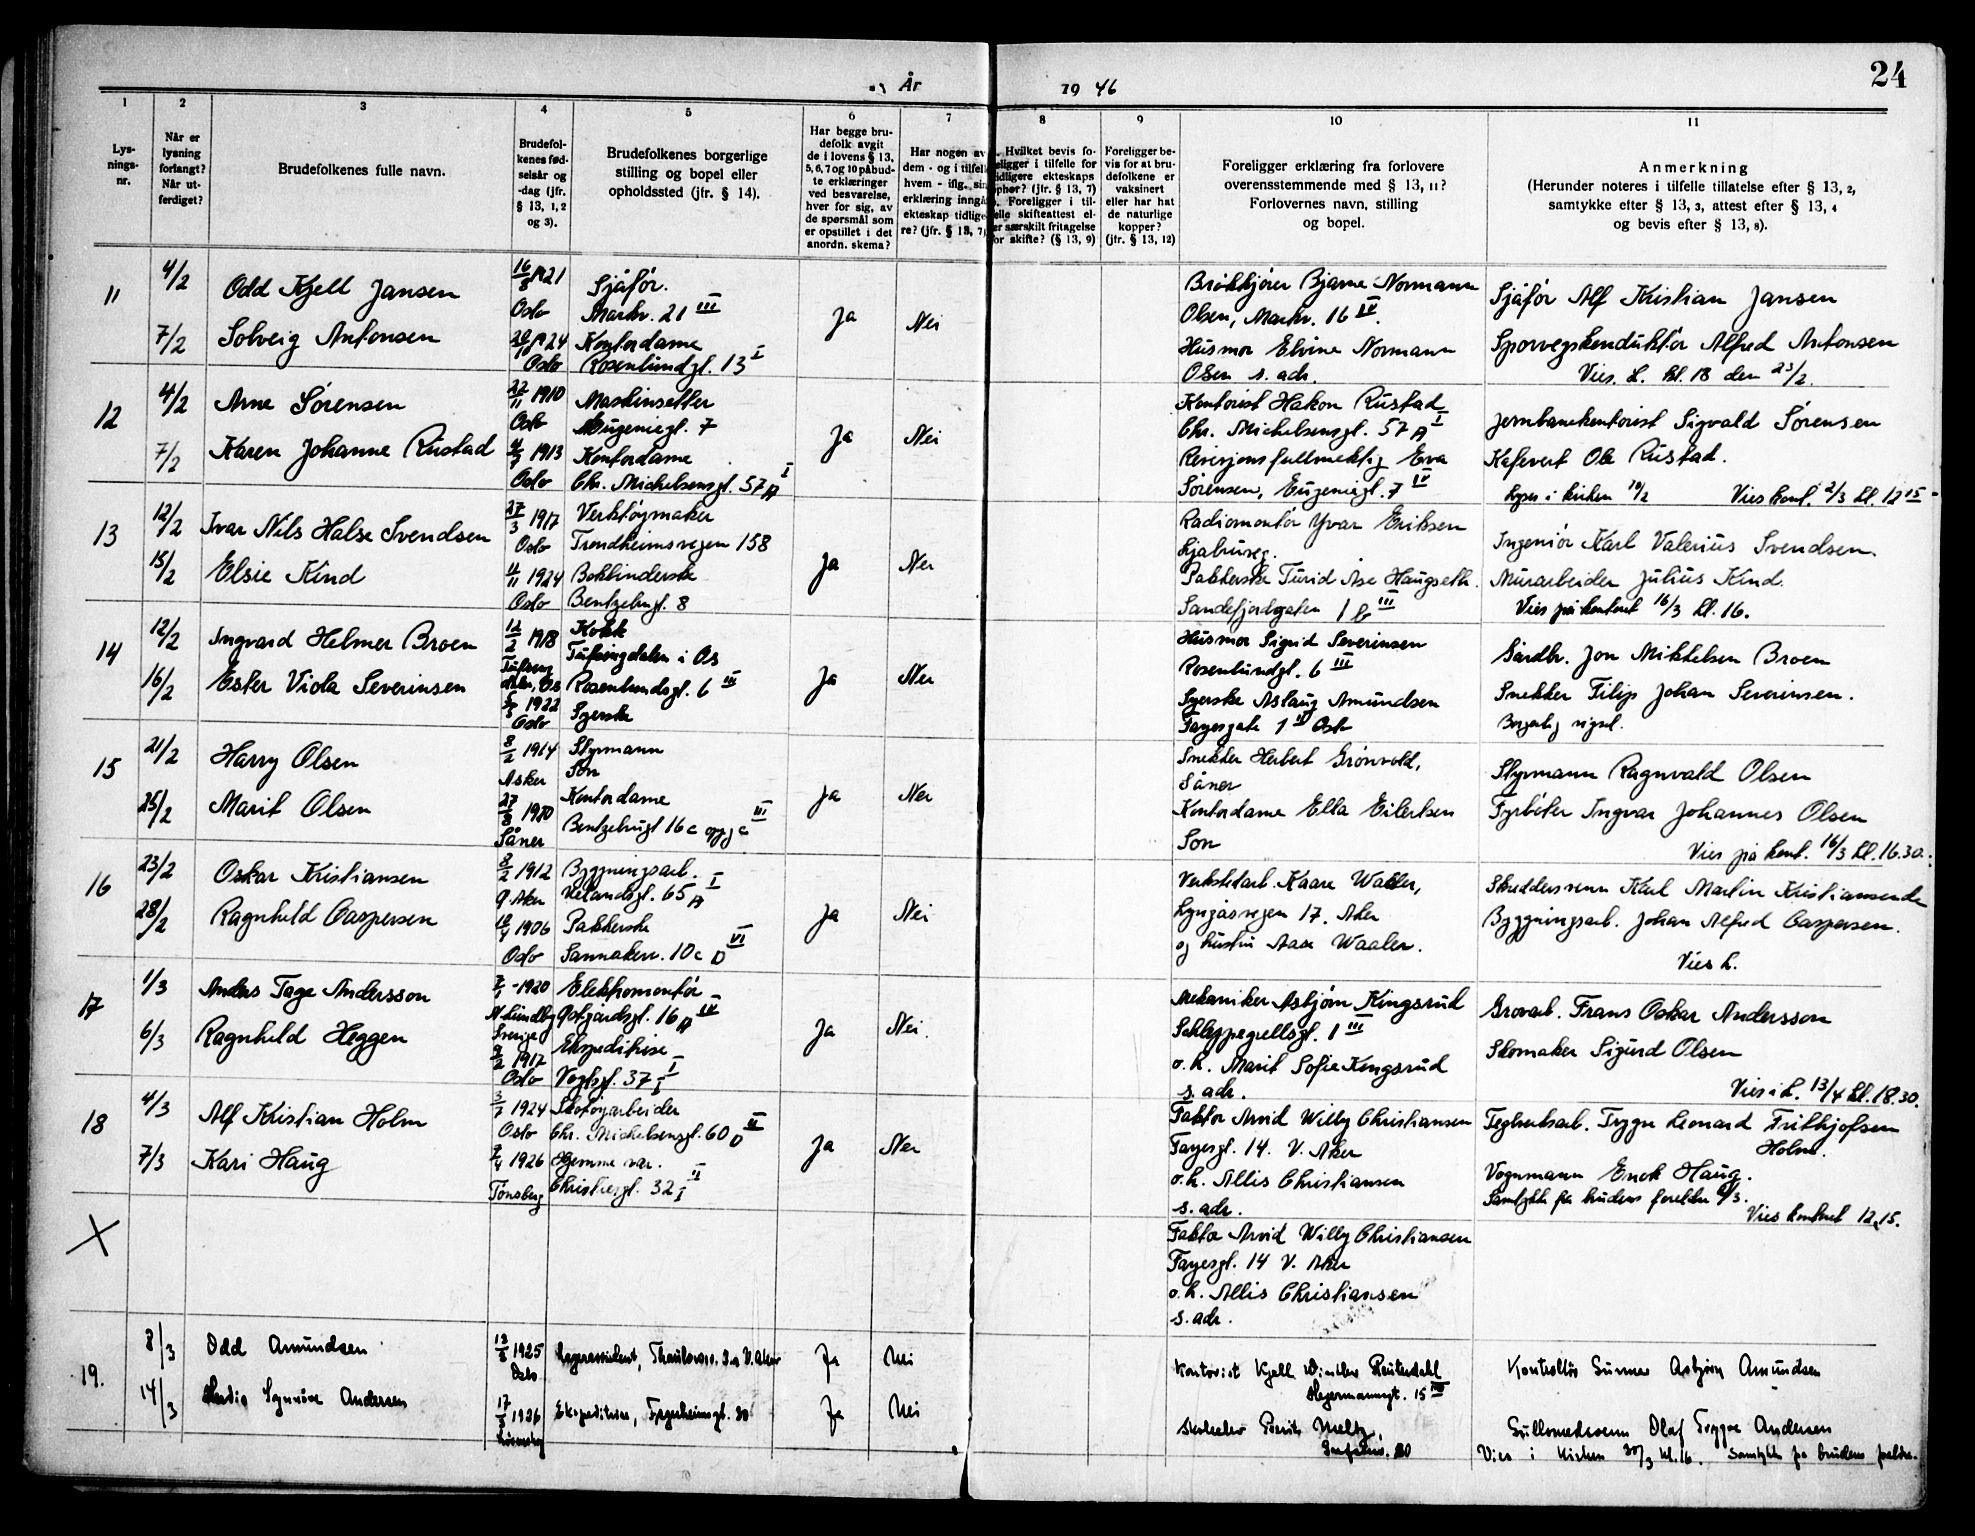 24
År 1946
1
Lys-
nings-
nr.
2
Når er
lysning
forlangt?
Når ut-
ferdiget?
3
Brudefolkenes fulle navn.
4
Brudefol-
kenes fød-
selsår og
-dag (jfr.
§ 13, 1, 2
og 3).
5
Brudefolkenes borgerlige
stilling og bopel eller
opholdssted (jfr. § 14).
6
Har begge bru-
defolk avgit
de i lovens § 13,
5, 6, 7 og 10 påbud-
te erklæringer
ved besvarelse,
hver for sig, av
de spørsmål som
er opstillet i det
anordn. skema?
7
Har nogen av
dem - og i tilfelle
hvem - iflg. sin
erklæring inngå
ekteskap tidlige-
re? (jfr. § 13, 7)
8
Hvilket bevis fo-
religger i tilfelle for
tidligere ekteskaps
ophør? (jfr. § 13, 7)
Foreligger i til-
felle skifteattest el-
er særskilt fritagelse
for skifte? (§ 13, 9)
9
Foreligger be-
vis for at bru-
defolkene er
vaksinert
eller har hat
de naturlige
kopper?
(jfr. § 13, 12)
10
Foreligger erklæring fra forlovere
overensstemmende med § 13, 11?
Forlovernes navn, stilling
og bopel.
11
Anmerkning
(Herunder noteres i tilfelle tillatelse efter § 13, 2,
samtykke efter § 13, 3, attest efter § 13, 4
og bevis efter § 13, 8).
11
4/2 Odd Kjell Jansen 16/8 1921 Sjåfør.
Oslo Markv. 21 III
7/2 Solveig Antonsen 1924 Kontordame
Oslo Rosenlundgt. 13 I
Ja Nei
Bjarne Normann
Olsen, Markv. 16 IV.
Husmor Elvine Normann
Olsen s. adr.
Sjåfør Alf Kristian Jansen
Sporvegskonduktør Alfred Antonsen
Vies. k. kl. 18 den 23/2.
12
4/2 Arne Sørensen 22/11 1910 Maskinsetter
Oslo Eugeniegt. 7
7/2 Karen Johanne Rustad 1913 Kontordame
Oslo Chr. Michelsensgt. 57 A I
Ja Nei
Kontorist Hakon Rustad
Chr. Michelsensgt. 57 A I
Revisjonsfullmektig Eva
Sørensen, Eugeniegt. 7 IV
Jernbanekontorist Sigvald Sørensen
Kafevert Ole Rustad.
Lyses i kirken 10/2 Vies kont. 2/3 kl. 12 15
13
12/2 Ivar Nils Halse Svendsen 27/3 1917 Verktøymaker
Oslo Trondheimsvegen 158
15/2 Elsie Kind 11/11 1924 Bokbinderske
Oslo Bentzebrugt. 8
Ja Nei
Radiomontør Yvar Eriksen
Ljabruveg.
Pakkerske Turid Åse Haugseth.
Sandefjordgaten 1 b III
Ingeniør Karl Valerius Svendsen.
Murarbeider Julius Kind.
Vies på kontoret 16/3 kl. 16.
14
12/2 Ingvard Helmer Broen 12/2 1918 Kokk
Tufsingdalen i Os
16/2 Ester Viola Severinsen Rosenlundsgt. 6 III
1922 Syerske
Oslo
Ja Nei
Husmor Sigrid Severinsen
Rosenlundgt. 6 III
Syerske Aslaug Amundsen
Fayesgate 1 II Oslo
Gårdbr. Jon Mikkelsen Broen
Snekker Filip Johan Severinsen.
Borgerlig vigsel.
15
21/2 Harry Olsen 8/2 1914 Styrmann
Asker Son
25/2 Marit Olsen 27/8 1920 Kontordame
Såner Bentzebrugt 16 c III
Ja Nei
Snekker Herbert Grønvold,
Såner
Kontordame Ella Eilertsen
Son
Styrmann Ragnvald Olsen
Fyrbøter Ingvar Johannes Olsen
Vies på kont. 16/3 kl. 16.30.
16
23/2 Oskar Kristiansen 8/2 1912 Bygningsarb.
Ø. Aker 65 A I
28/2 Ragnhild Caspersen 1906 Pakkerske
Oslo Sannakerv. 10 c D VI
Ja Nei
Verkstedarb. Kaare Waaler,
Lyngåsvegen 17. Aker
og hustru Aase Waaler.
Skreddersvenn Karl Martin Kristiansen
Bygningsarb. Johan Alfred Caspersen.
Vies k.
17
1/3 Anders Tage Andersson 7/1 1920 Elektromontør
N. Lundby 16 A IV
Sverige
6/3 Ragnhild Heggen 9/2 1917 Ekspeditrise
Oslo Vogtsgt. 37 I
Ja Nei.
Mekaniker Asbjørn Kingsrud
Schleppegrellsgt. 1 III
o. h. Marit Sofie Kingsrud
s. adr.
Grovarb. Frans Oskar Andersson
Skomaker Sigurd Olsen
Vies i k. 13/4 kl. 18.30.
18
4/3 Alf Kristian Holm 3/7 1924 Skotøyarbeider
Oslo Chr. Michelsensgt. 60 D II
7/3 Kari Haug 1926 Hjemme vær.
Tønsberg Christiesgt. 32 I II
Ja Nei
Faktor Arvid Willy Christiansen
Fayesgt. 14. V. Aker
o. h. Allis Christiansen
s. adr.
Teglverksarb. Trygve Leonard Frithjofsen
Holm.
Vognmann Enok Haug.
Samtykke fra brudens foreldre 4/3.
Vies kontoret 12,15.
X
Faktor Arvid Willy Christiansen
Fayesgt. 14 V. Aker
o. h. Allis Christiansen
s. adr.
19.
8/3 Odd Amundsen 1925 Lagerassistent, V. Aker
Oslo
Ja Nei
14/3 Synnøve Andersen 17/3 1926 Ekspeditrise, 30
Ja Nei
Kontorist Kjell Reuterdahl
Hegermannsgt. 15 III
Meltz,
Kontrollør Gunnar Asbjørn Amundsen
Gullsmedsvenn Olaf Trygve Andersen
Vies i kirken 30/3 kl. 16. Samtykke fra brudens foreldre.